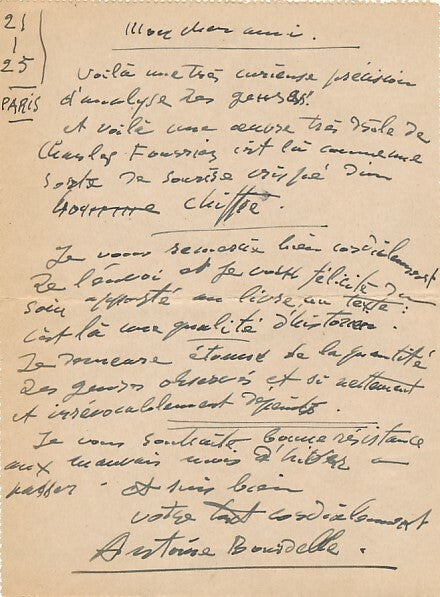 21
1
25
PARIS
Mon cher ami.
Voilà une très curieuse précision
d'analyse des genres!
Et voilà une œuvre très drôle de
Charles Fourrier c'est là comme une
sorte de sourire crispé d'un
homme chiffre.
Je vous remercie bien cordialement
de l'envoi et je vous félicite du
soin apporté au livre, au texte:
c'est là une qualité d'historien.
Je demeure étonné de la quantité
des genres observés et si nettement
et irrévocablement dépeints.
Je vous souhaite bonne résistance
aux mauvais mois d'hiver à
passer Et suis bien
votre tout cordialement
Antoine Bourdelle.